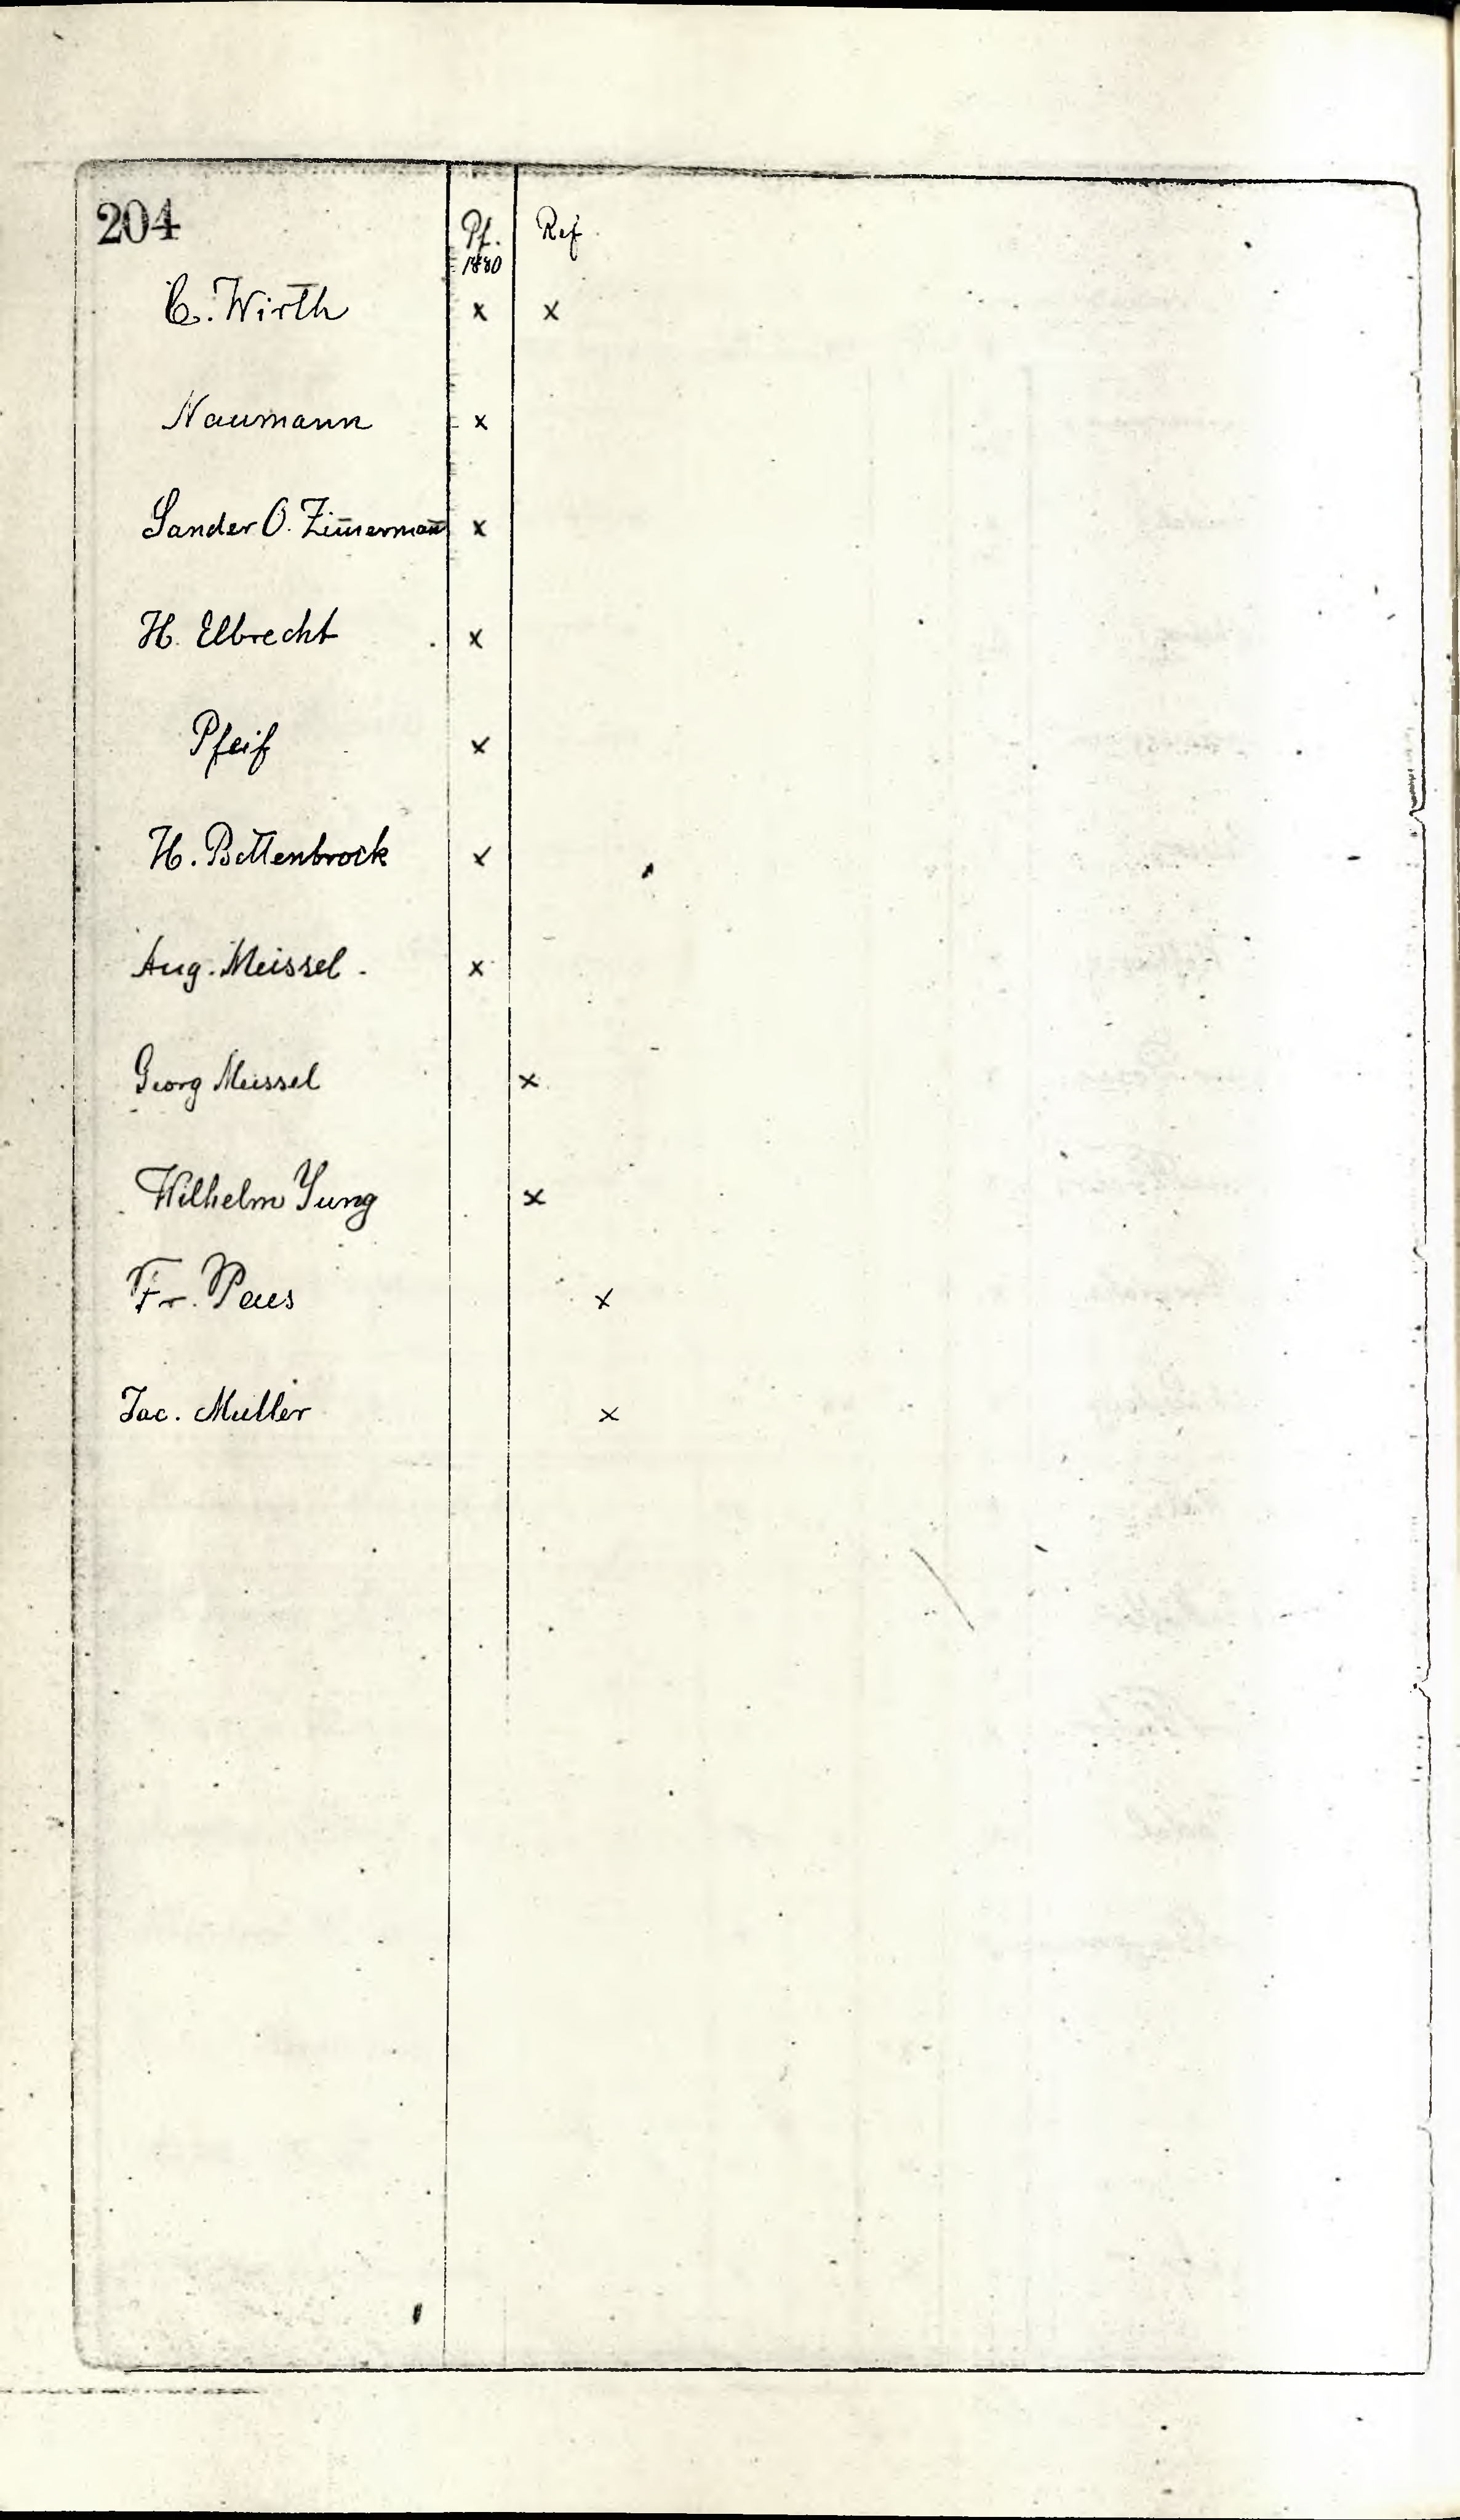 204 Pf. Ref.
1880
C. Wirth x x
Naumann x
Sander O. Zim̄erman̄ x
H. Elbrecht x
Pfeif x
H. Bettenbrock x
Aug. Meissel. x
Georg Meissel x
Wilhelm Yung x
Fr. Paus x
Jac. Muller x